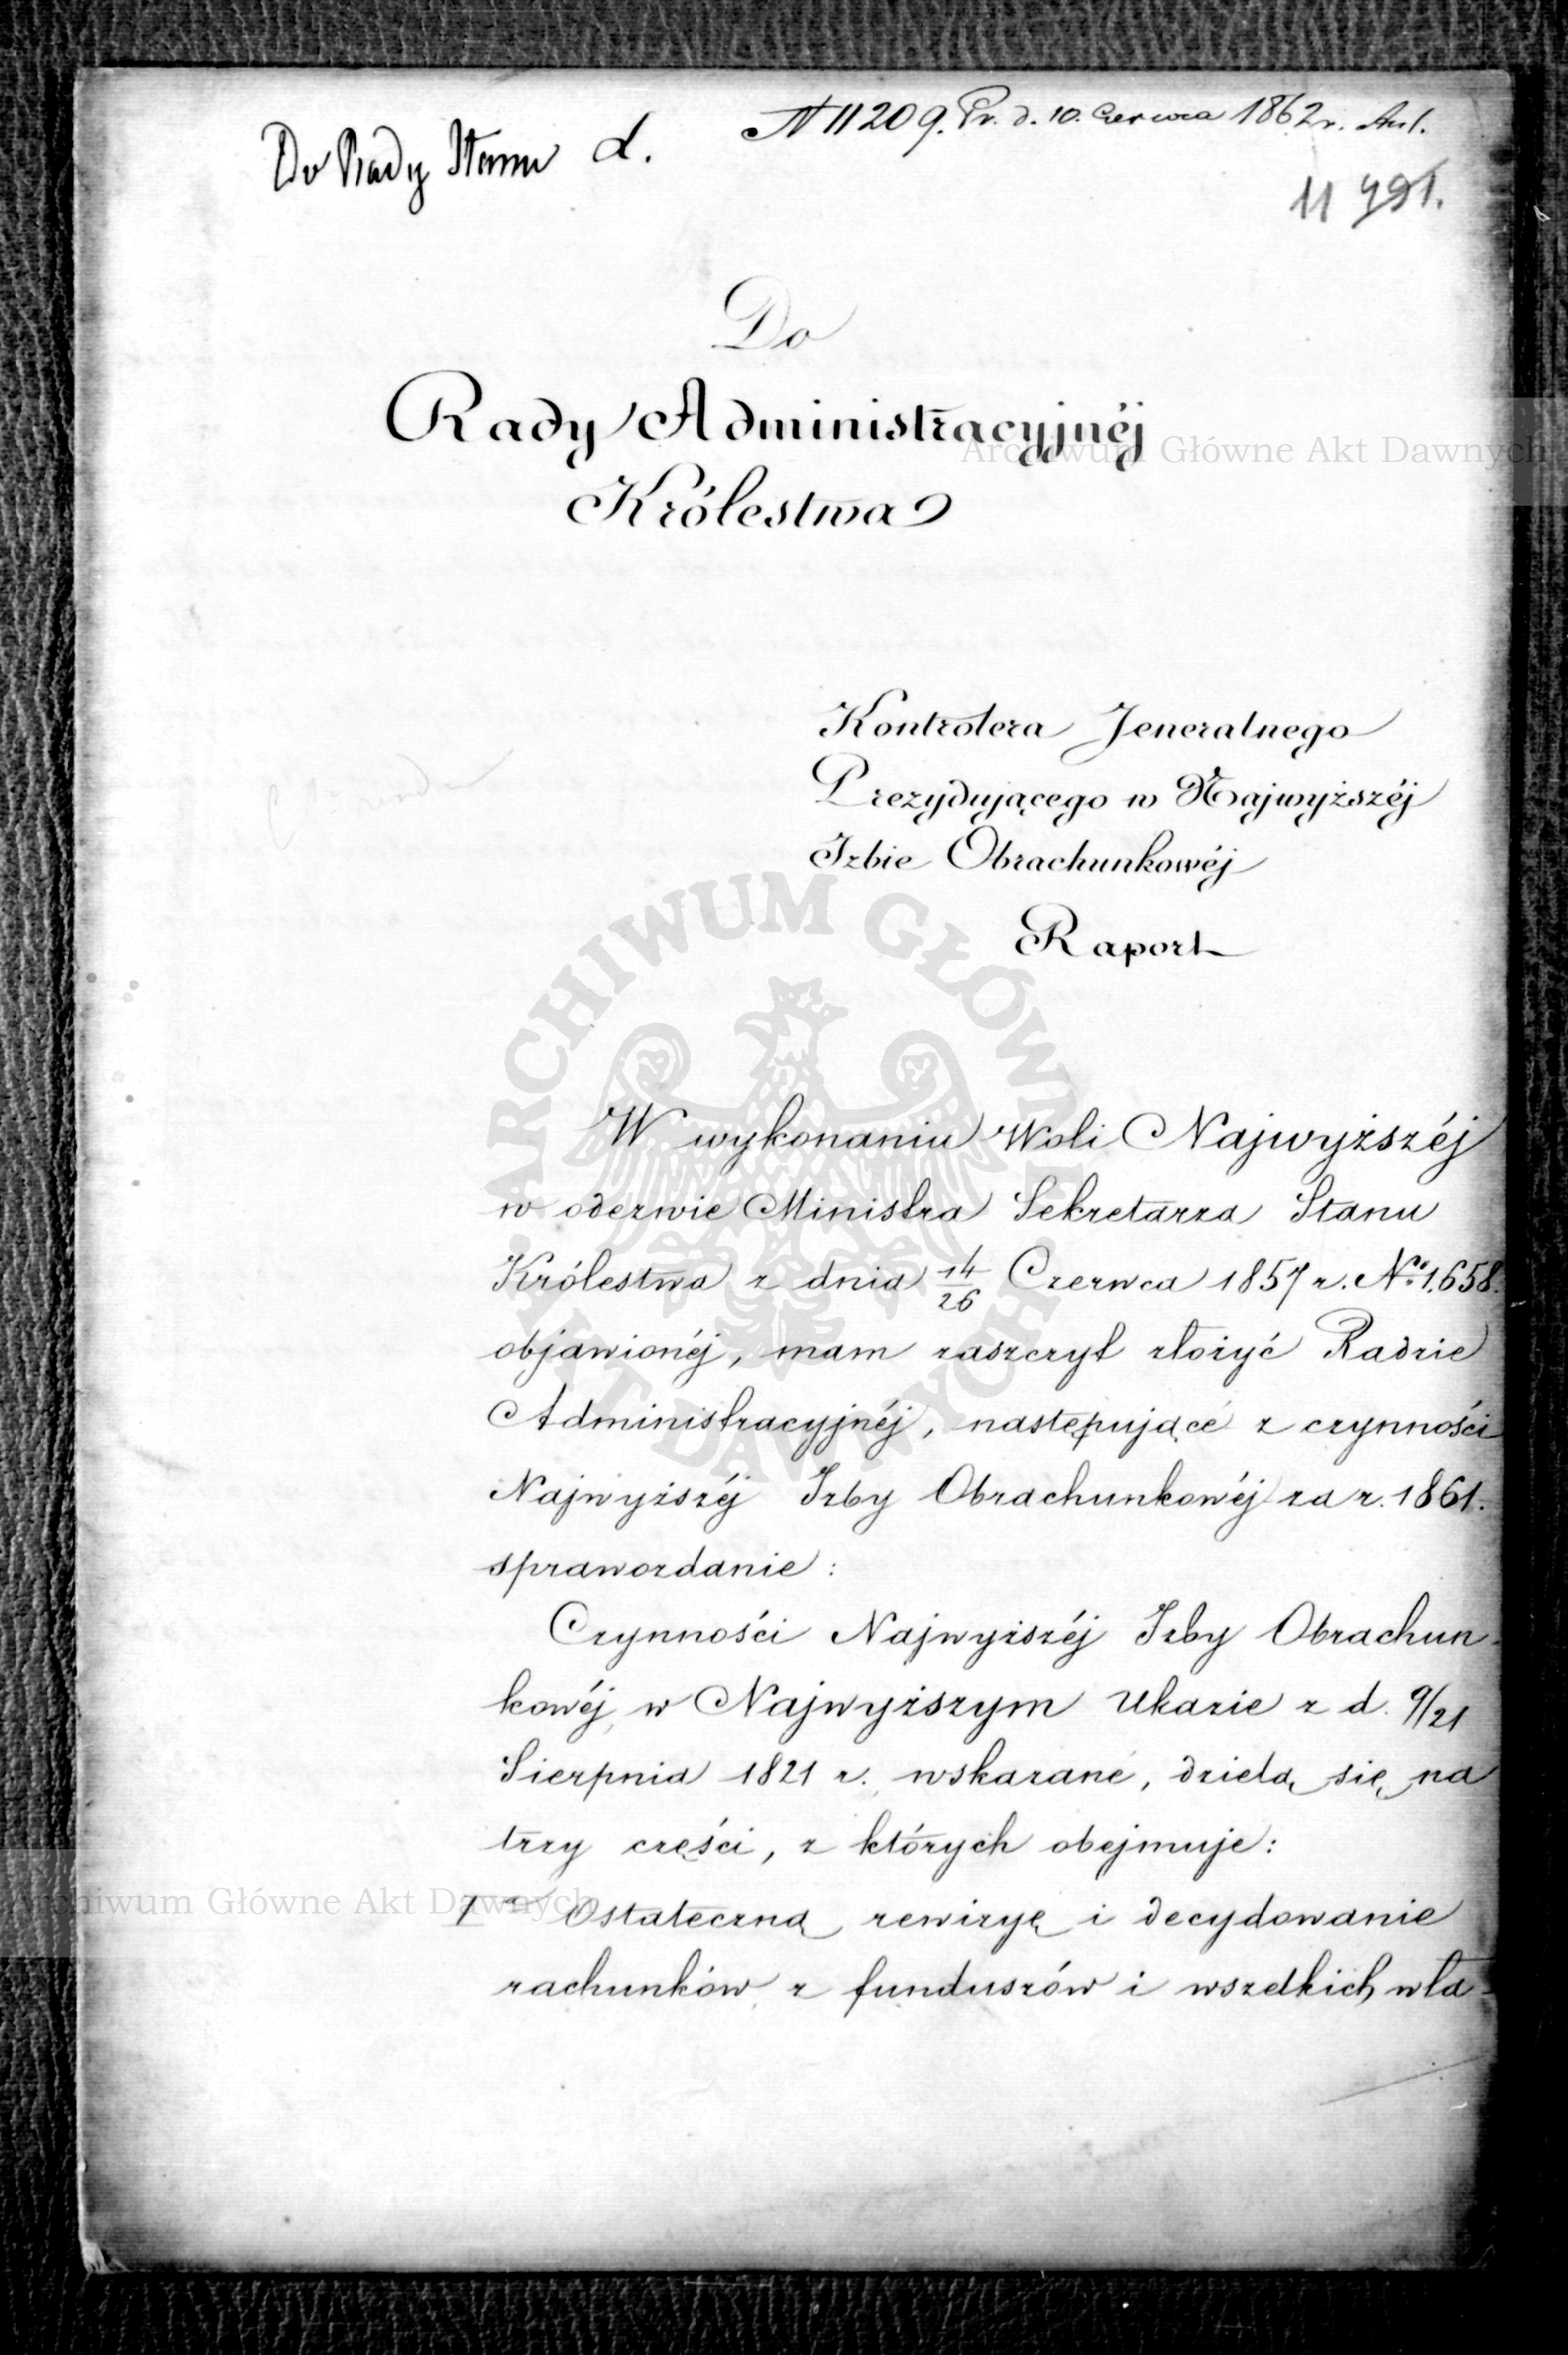 Do Rady Stanu d.
N 11209. Pr. d. 10. Czerwca 1862 r.
11
Do
Rady Administracyjnéj
Królestwa
Kontrolera Jeneralnego
Prezydującego w Najwyższéj
Izbie Obrachunkowéj
Raport
W wykonaniu Woli Najwyższéj
w odezwie Ministra Sekretarza Stanu
Królestwa z dnia 14/26 Czerwca 1857 r. No. 1,658.
objawionéj, mam zaszczyt złożyć Radzie
Administracyjnéj, następujące z czynności
Najwyższéj Izby Obrachunkowéj za r. 1861.
sprawozdanie:
Czynności Najwyższéj Izby Obrachun-
kowéj, w Najwyższym Ukazie z d. 9/21
Sierpnia 1821 r. wskazane, dzielą się na
trzy części, z których obejmuje:
1a Ostateczną rewizyę i decydowanie
rachunków z funduszów i wszelkich wła-
Archiwum Główne Akt Dawnych
Archiwum Główne Akt Dawnych
ARCHIWUM GŁÓWNE AKT DAWNYCH